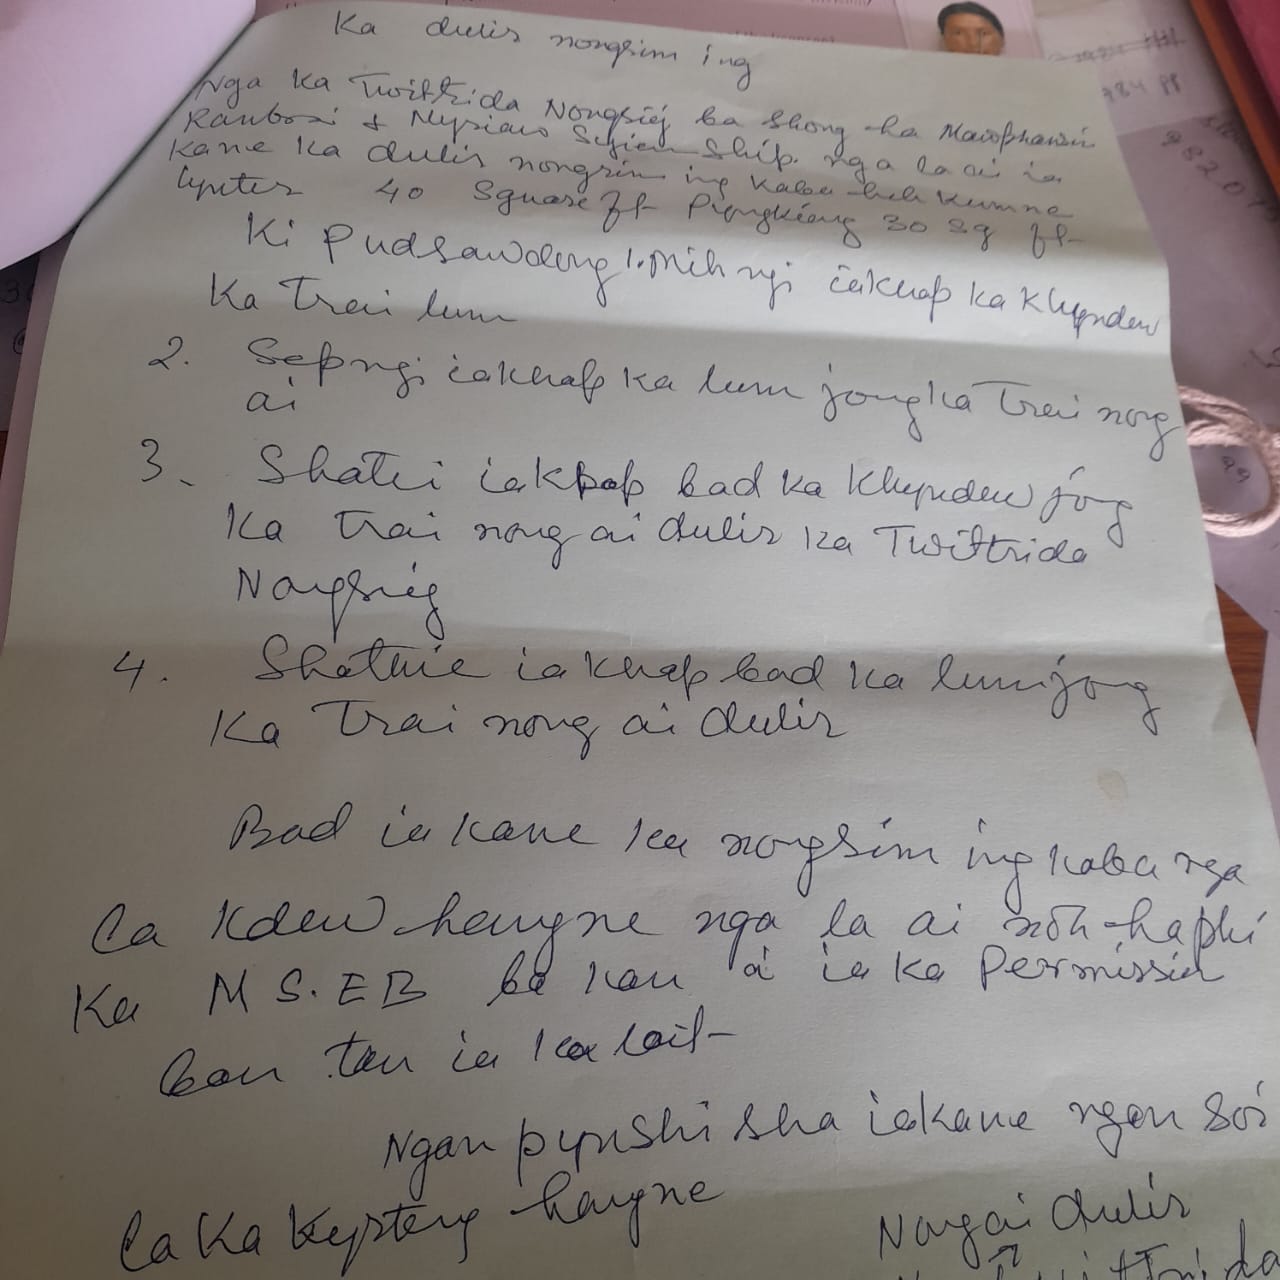 Ka dulir nongsim ing
Nga Ka Twittrida Nongsiej ba Shong ha Mawphawin
Ranboxi & Nysiaw Syiem Ship. nga la ai ia
Kane Ka dulir nongsim ing kaba heh kumne
lynter 40 Square ft Pyngkiang 30 sq ft
Ki pudsawdong 1. Mih ngi iakhap ka Khyndew
Ka Trai lum
2. Sepngi iakhap ka lum jong ka Trai nong
ai
3. Shatei iakhap bad ka Khyndew jong
Ka Trai nong ai dulir ka Twittrida
Nongsiej
4. Shathie iakhap bad ka lum jong
Ka Trai nong ai dulir
Bad ia kane ka nongsim ing kaba nga
la kdew hangne nga la ai nôh ha phi
Ka M S.EB ba kan ai ia ka Permission
ban tan ia ka lait
Ngan pynshisha ia kane ngan soi
la Ka Kyrteng hangne
Nongai dulir